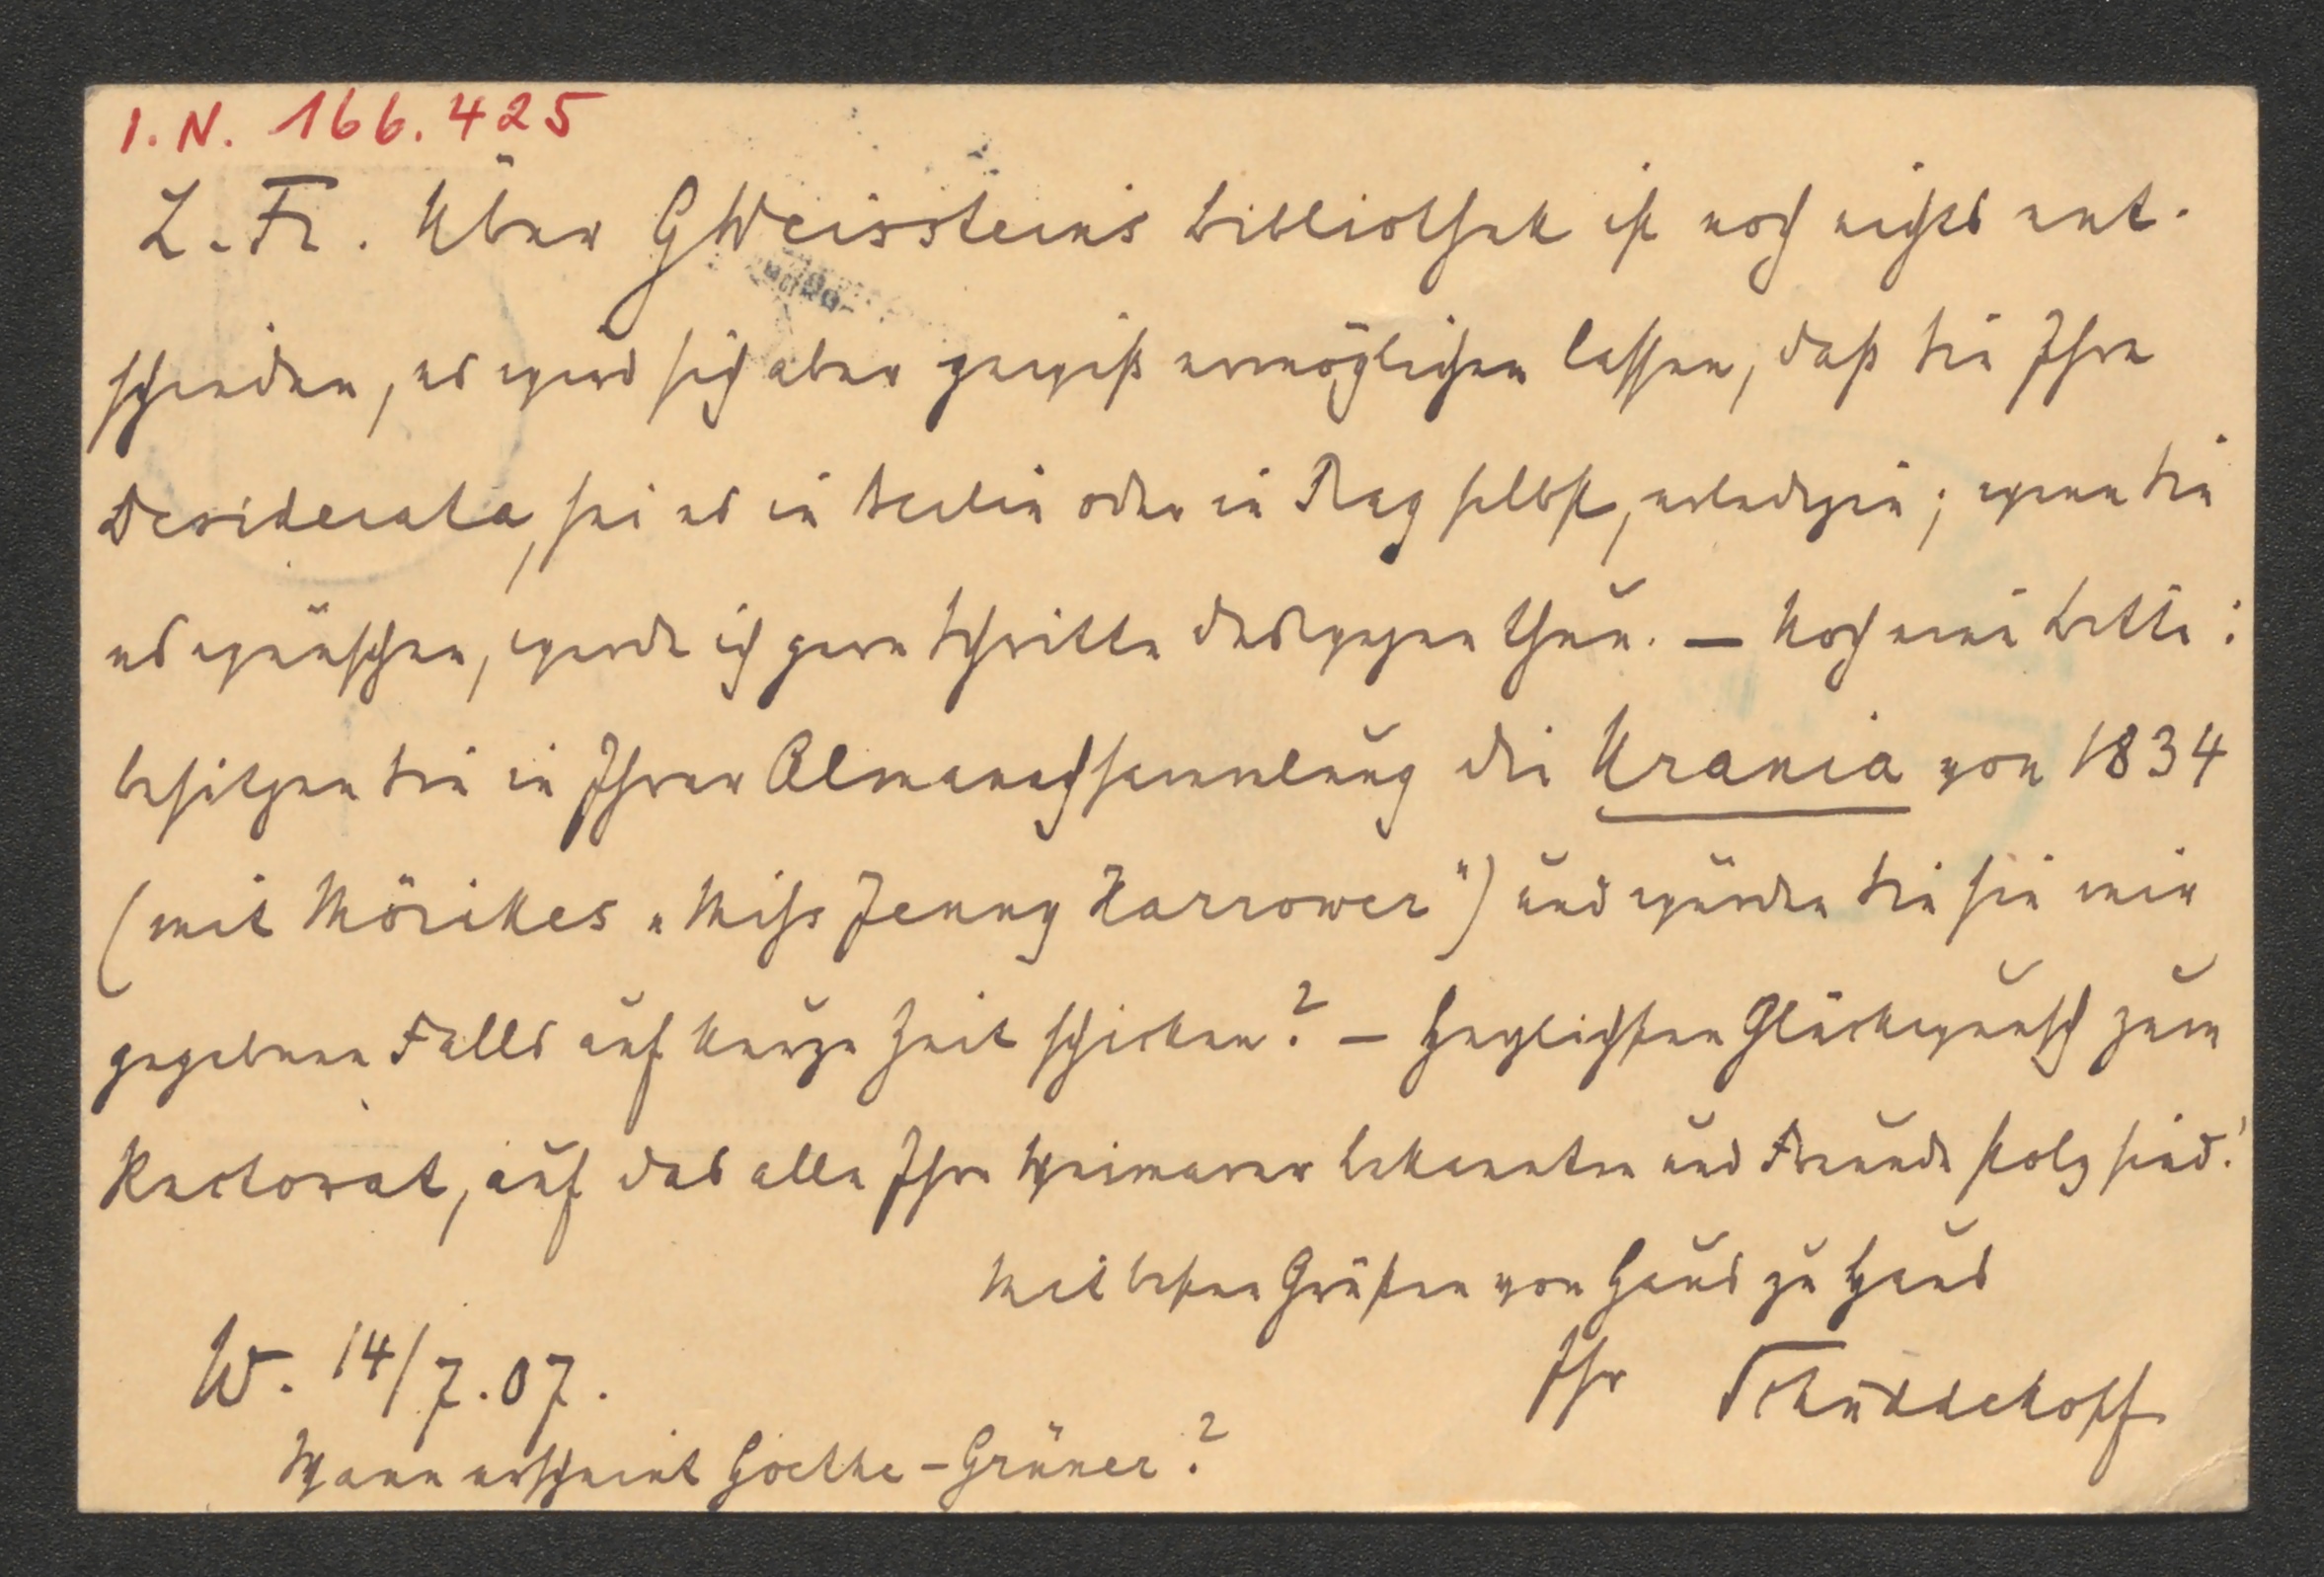 I.N. 166.425
L. Fr. Über GWeisstein's Bibliothek ist noch nichts ent-
schieden, es wird sich aber gewiß ermöglichen lassen, daß Sie Ihre
Desiderata, sei es in Berlin oder in Prag selbst, erledigen; wenn Sie
es wünschen, werde ich gern Schritte deswegen thun. – Noch eine Bitte:
besitzen Sie in Ihrer Almanachsammlung die Urania von 1834
(mit Mörikes „Miss Jenny Harrower“) und würden Sie sie mir
gegebenen Falls auf kurze Zeit schicken? – Herzlichsten Glückwunsch zum
Rectorat, auf das alle Ihre Weimarer Bekannten und Freunde stolz sind!
Mit besten Grüßen von Haus zu Haus
W. 14/7.07. Ihr Schüddekopf
Wann erscheint Goethe-Grüner?